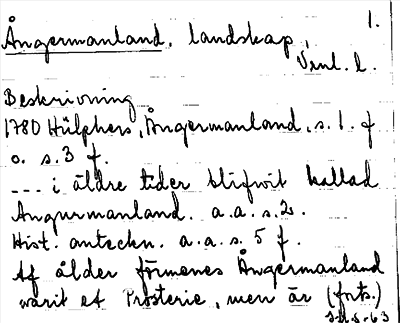 1.
Ångermanland, landskap,
Vnl. l.
Beskrivning
1780 Hülphers, Ångermanland, s. 1. f
o. s. 3 f.
--- i äldre tider blifvit kallad
Angurmanland. a.a. s. 2.
Hist. anteckn. a.a. s. 5 f.
Af ålder förmenes Ångermanland
warit et Prosterie, men är (forts.)